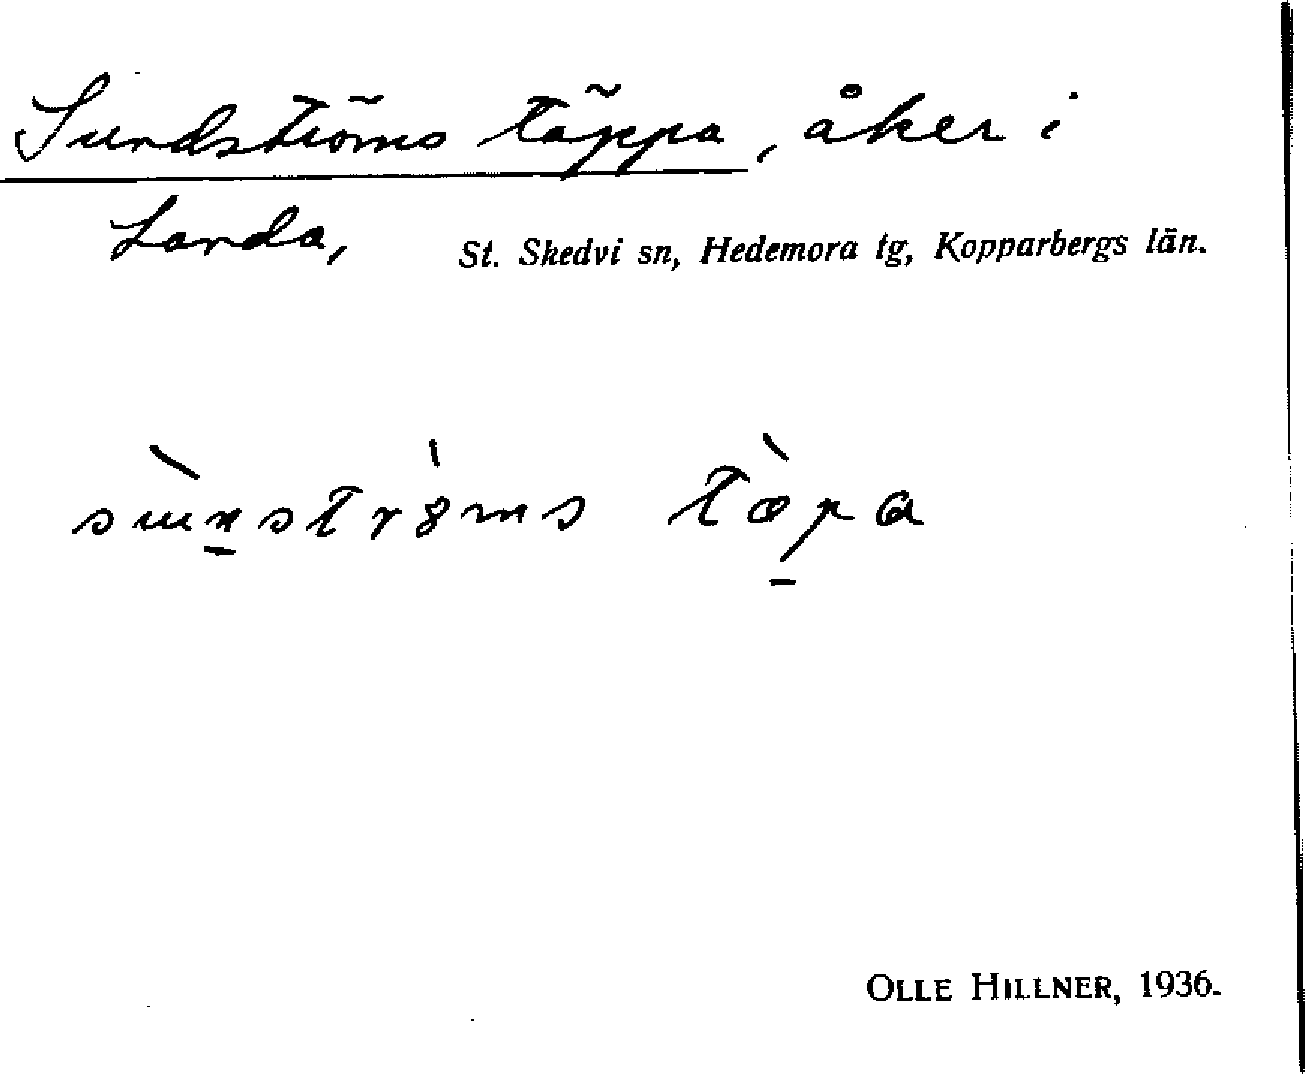 Sundströms täppa, åker i
Landa, St. Skedvi sn, Hedemora tg, Kopparbergs län.
OLLE HILLNER, 1936.